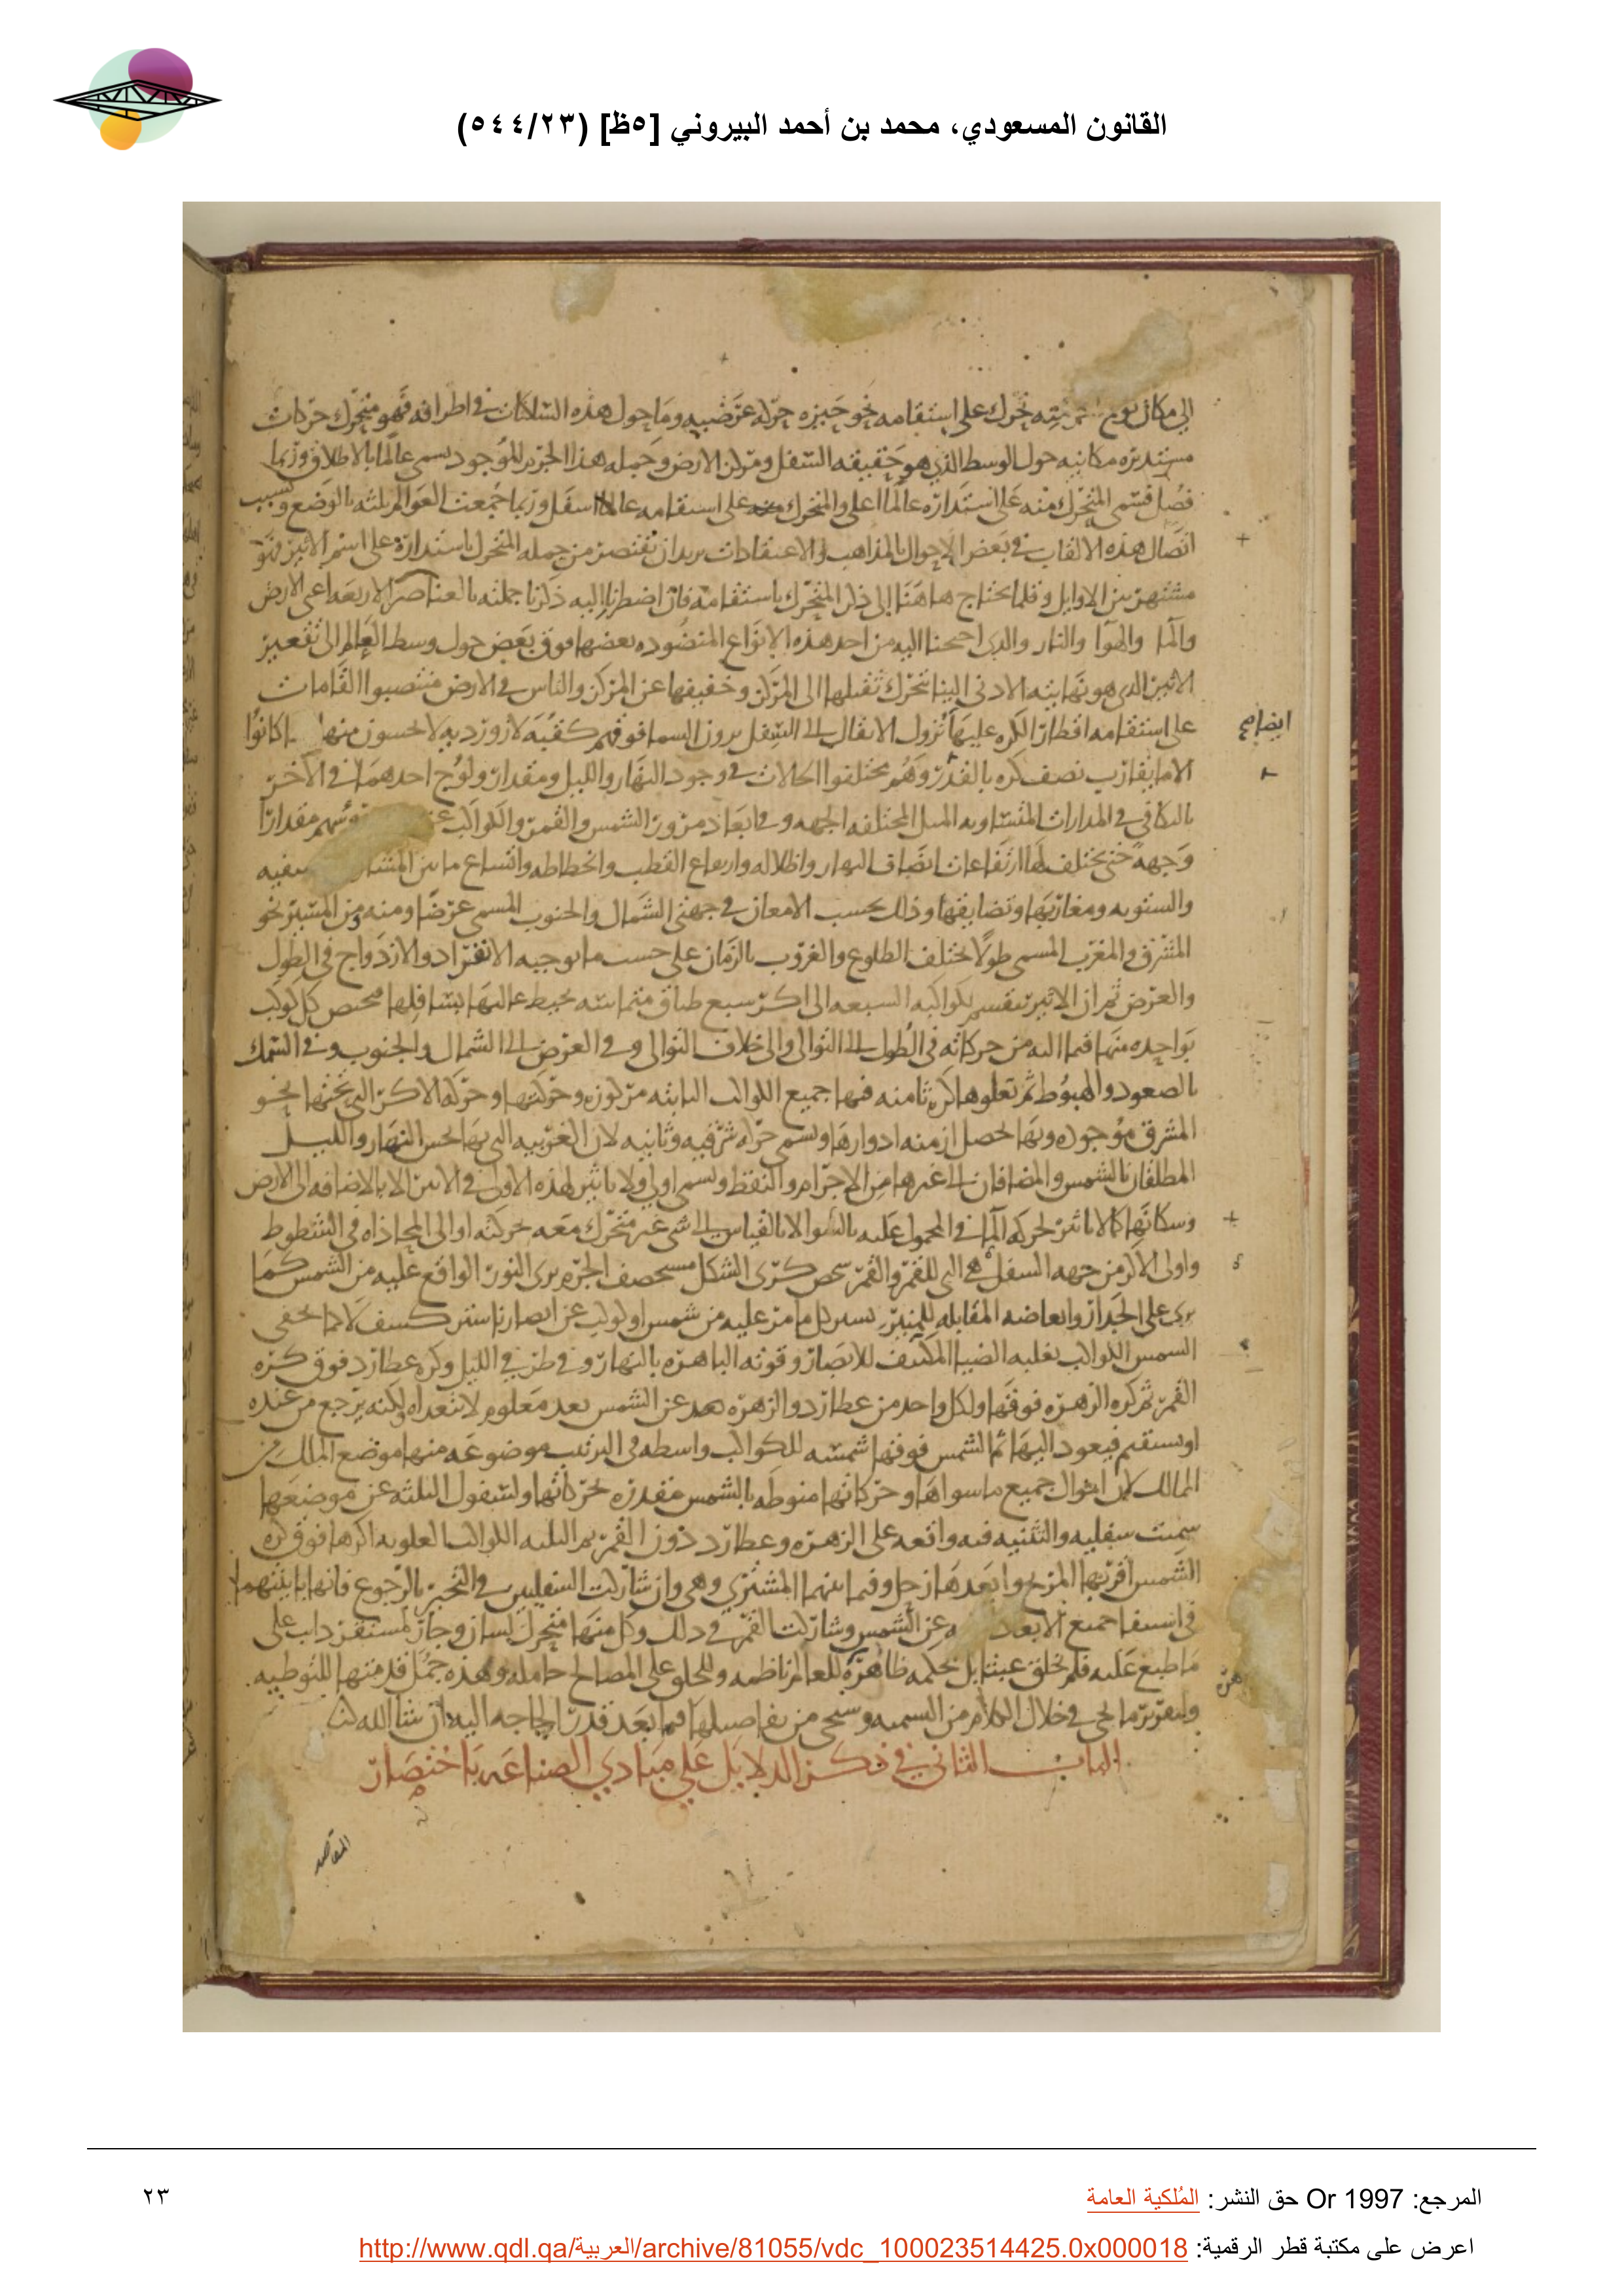 القانون المسعودي، محمد بن أحمد البيروني [٥ظ] (٥٤٤/٢٣)
الى مكان تحرك على استقامه نحو حيزه حركه عرضيه وما حول هذه الساكنات فى اطرافه فهو متحرك حركات
مستديره مكانيه حول الوسط الذي هو حقيقه السفل ومركز الارض وجمله هذا الموجود يسمى عالما بالاطلاق وربما
فصل فسمى المتحرك منه على استداره عالما اعلى والمتحرك على استقامه عالما اسفل وربما جمعت العوالم بالوضع وبسبب
اتصال هذه الالقاب فى بعض الاحوال بالمذاهب والاعتقادات نريد ان نقتصر من جمله المتحرك باستداره على اسم الاثير فهو
مشتهر بين الاوايل وقلما نحتاج هاهنا الى ذكر المتحرك باستقامه فان اضطررنا اليه ذكرنا جملته بالعناصر الاربعه اعنى الارض
والما والهوا والنار والذى احتجنا اليه من احد هذه الانواع المنضوده بعضها فوق بعض حول وسط العالم الى تقعير
الاثير الذى هو نهايته الادنى الينا تحرك ثقيلها الى المركز وخفيفها عن المركز والناس فى الارض منتصبوا القامات
على استقامه اقطار الكره عليها نزول الاثقال الى السفل يرون السما فوقهم كقبه لازورديه لا يحسون منها كانوا
ايضا صح
الا ما يقارب نصف كره بالقدر وهم مختلفوا الحالات فى وجود النهار والليل ومقدار ولوج احدهما فى الاخر
بالتكافى فى المدارات المتساويه الميل المختلفه الجهه وفى ابعاد ممرور الشمس والقمر والكواكب عن رؤسهم مقدارا
وجهه حتى يختلف لها ارتفاعات انصاف النهار واظلاله وارتفاع القطب وانحطاطه واتساع ما بين المشارق
والشتويه ومغاربها وتضايقها وذلك بحسب الامعان فى جهتى الشمال والجنوب المسمى عرضا ومنه ومن المسير نحو
المشرق والمغرب المسمى طولا يختلف الطلوع والغروب بالزمان على حسب ما يوجبه الانفراد والازدواج فى الطول
والعرض ثم ان الاثير ينقسم بكواكبه السبعه الى اكر سبع طباق متماسه يحيط عاليها بسافلها مختص كل كوكب
بواحده منها فيما اليه من حركاته فى الطول الى التوالى والى خلاف التوالى وفى العرض الى الشمال والجنوب وفى السمك
بالصعود والهبوط ثم تعلوها كره ثامنه فيها جميع الكواكب الثابته مركوزه وحركتها وحركه الاكر التى تحتها نحو
المشرق موجوده وبها تحصل ازمنه ادوارها وتسمى حركه شرقيه وثانيه لان الغربيه التى بها يحس النهار والليل
المطلقان بالشمس والمضافان الى غيرها من الاجرام والنقط وتسمى اولى ولا تاثير لهذه الاولى فى الاثير الا بالاضافه الى الارض
وسكانها كما لا تاثير لحركه الما فى المحمول عليه بالسوا الا بالقياس الى شى غير متحرك معه حركته او الى المحاذاه فى الشطوط
واولى الاكر من جهه السفل هى التى للقمر والقمر شخص كرى الشكل مستحصف الجرم يرى النور الواقع عليه من الشمس كما
يرى على الجدار المقابله للنير يستر كل ما مر عليه من شمس او كوكب عن ابصارنا ستر كسف لا كما تخفى
الشمس الكواكب بغلبه الضيا المكتنف للابصار وقوته الباهره بالنهار وفى طرفى الليل وكره عطارد فوق كره
القمر ثم كره الزهره فوقها ولكل واحد من عطارد والزهره بعد عن الشمس بعد معلوم لا تتعداه ولكنه يرجع من عنده
او يستقيم فيعود اليها ثم الشمس فوقها شمسه للكواكب واسطه فى الترتيب موضوعه منها موضع الملك من
الممالك لان احوال جميع ما سواها وحركاتها منوطه بالشمس مقدره بحركاتها ولسفول الثلثه عن موضعها
سميت سفليه والتثنيه فيه واقعه على الزهره وعطارد دون القمر ثم الثلثه الكواكب العلويه اكرها فوق كره
الشمس اقربها المريخ وابعدها زحل وفيما بينهما المشتري وهى وان شاركت السفليين فى التحير بالرجوع فانها باينتهما
فى استيفا جميع الابعاد عن الشمس وشاركت القمر فى ذلك وكل منها متحرك لسان وجار لمستقر داب على
ما طبع عليه فلم يخلق عبثا بل بحكمه ظاهره للعالم ناظمه وللخلق على المصالح حامله وهذه جمل قدمتها للتوطيه
ولتقرير ما يجى فى خلال الكلام من التسميه وسيجى من تفاصيلها فيما بعد قدر الحاجه اليه ان شا الله
الباب الثاني في ذكر الدلايل على مبادي الصناعه باختصار
المرجع: Or 1997 حق النشر: المُلكية العامة
٢٣
اعرض على مكتبة قطر الرقمية: http://www.qdl.qa/العربية/archive/81055/vdc_100023514425.0x000018